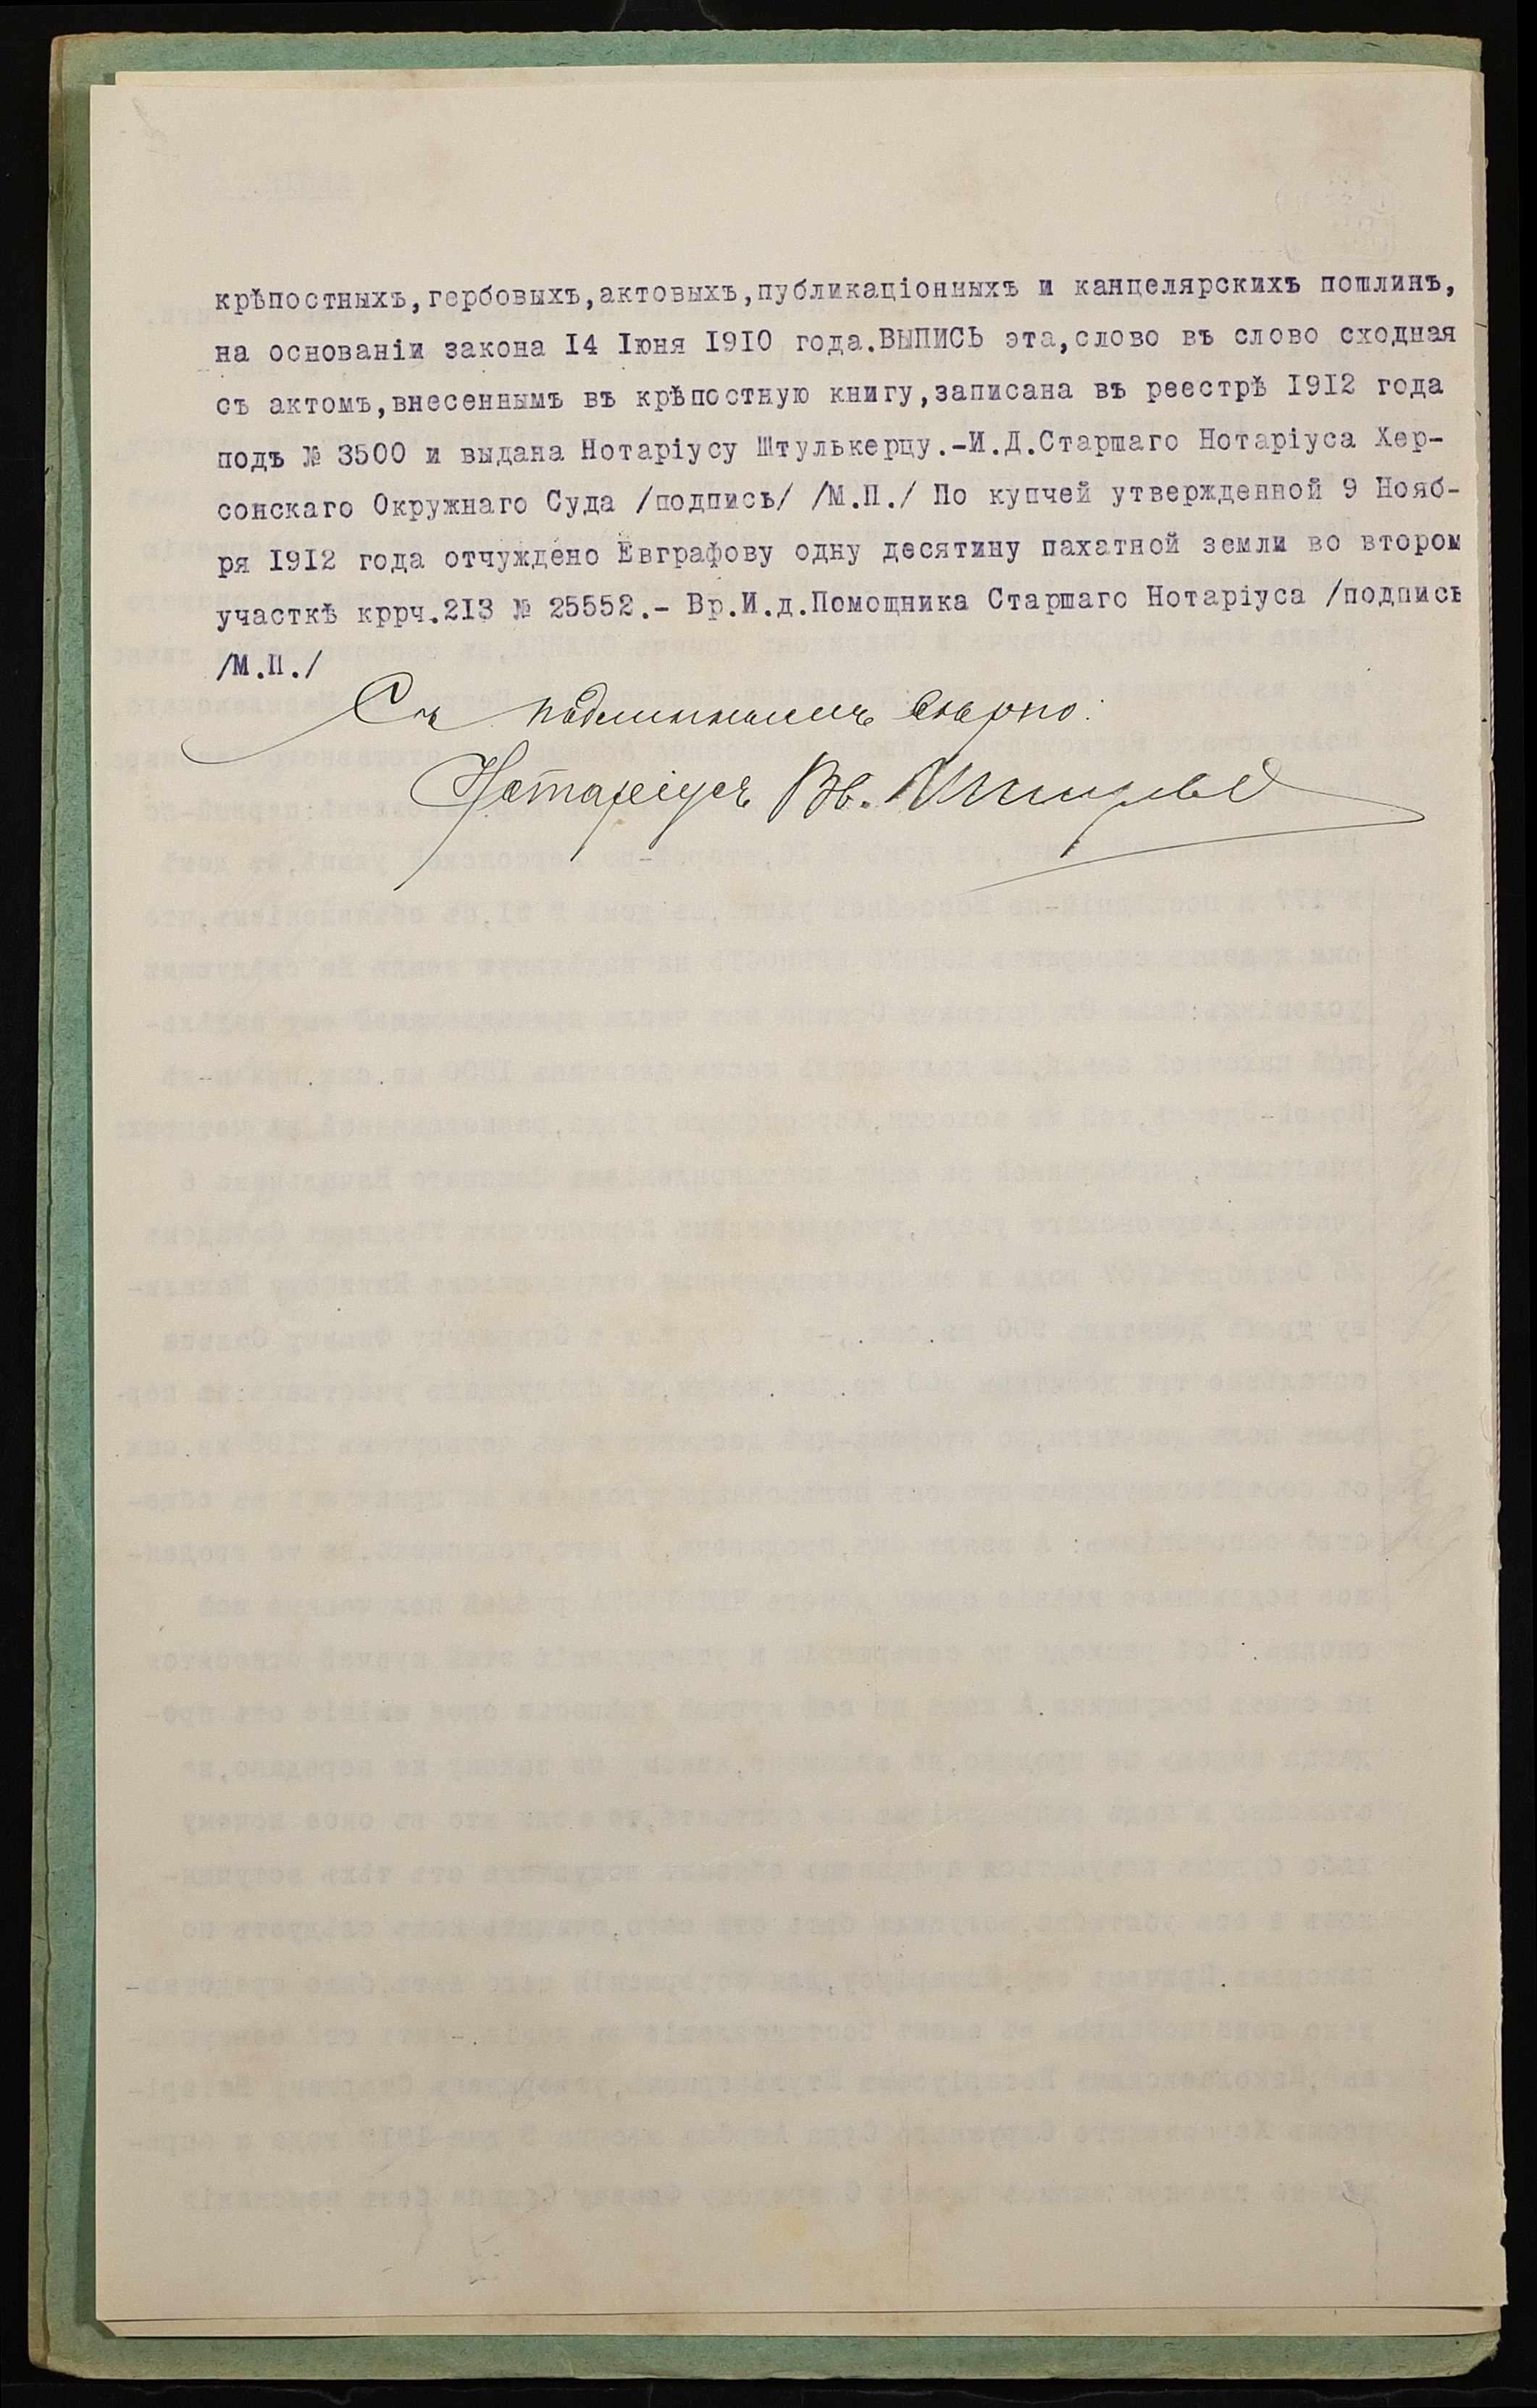 крѣпостныхъ,гербовыхъ,актовыхъ,публикаціонныхъ и канцелярскихъ пошлинъ,
на основаніи закона I4 Iюня I9I0 года.ВЫПИСЬ эта,слово въ слово сходная
съ актомъ,внесеннымъ въ крѣпостную книгу,записана въ реестрѣ I9I2 года
подъ № 3500 и выдана Нотаріусу Штулькерцу.-И.Д.Старшаго Нотаріуса Хер-
сонскаго Окружнаго Суда /подпись/ /М.П./ По купчей утвержденной 9 Нояб-
ря I9I2 года отчуждено Евграфову одну десятину пахатной земли во втором
участкѣ кррч.2I3 № 25552.- Вр.И.д.Помощника Старшаго Нотаріуса /подпись
/М.П./
Съ подлиннымъ вѣрно:
Нотаріусъ